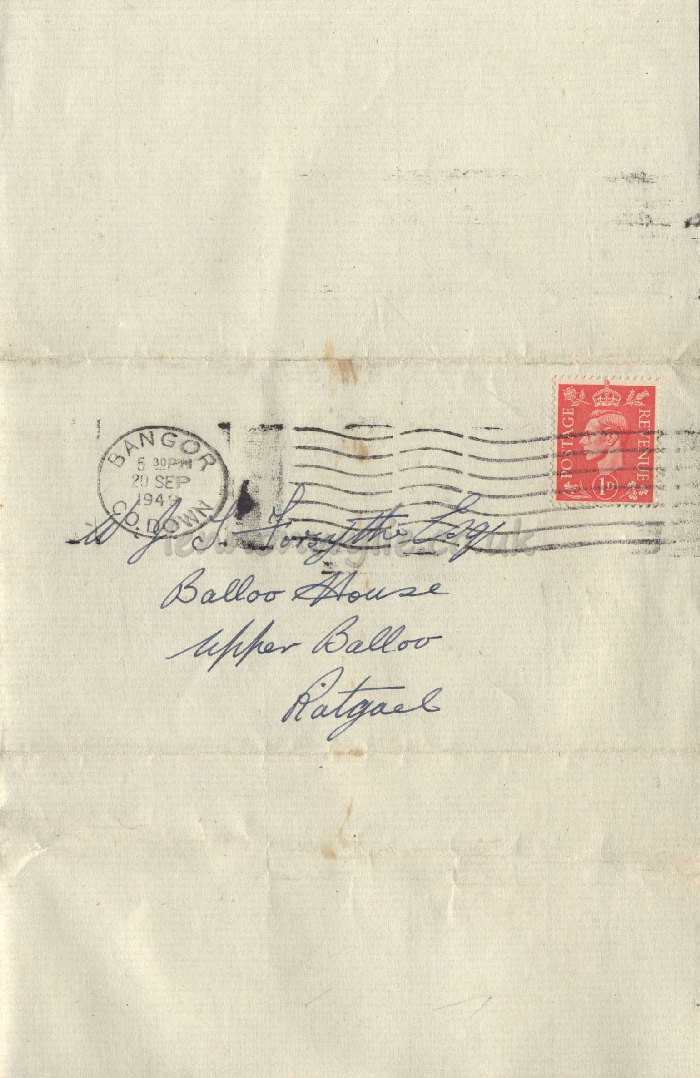 BANGOR
5 30PM
20 SEP
1949
CO. DOWN
POSTAGE
REVENUE
1D
W J S. Forsythe Esq
Balloo House
Upper Balloo
Ratgael